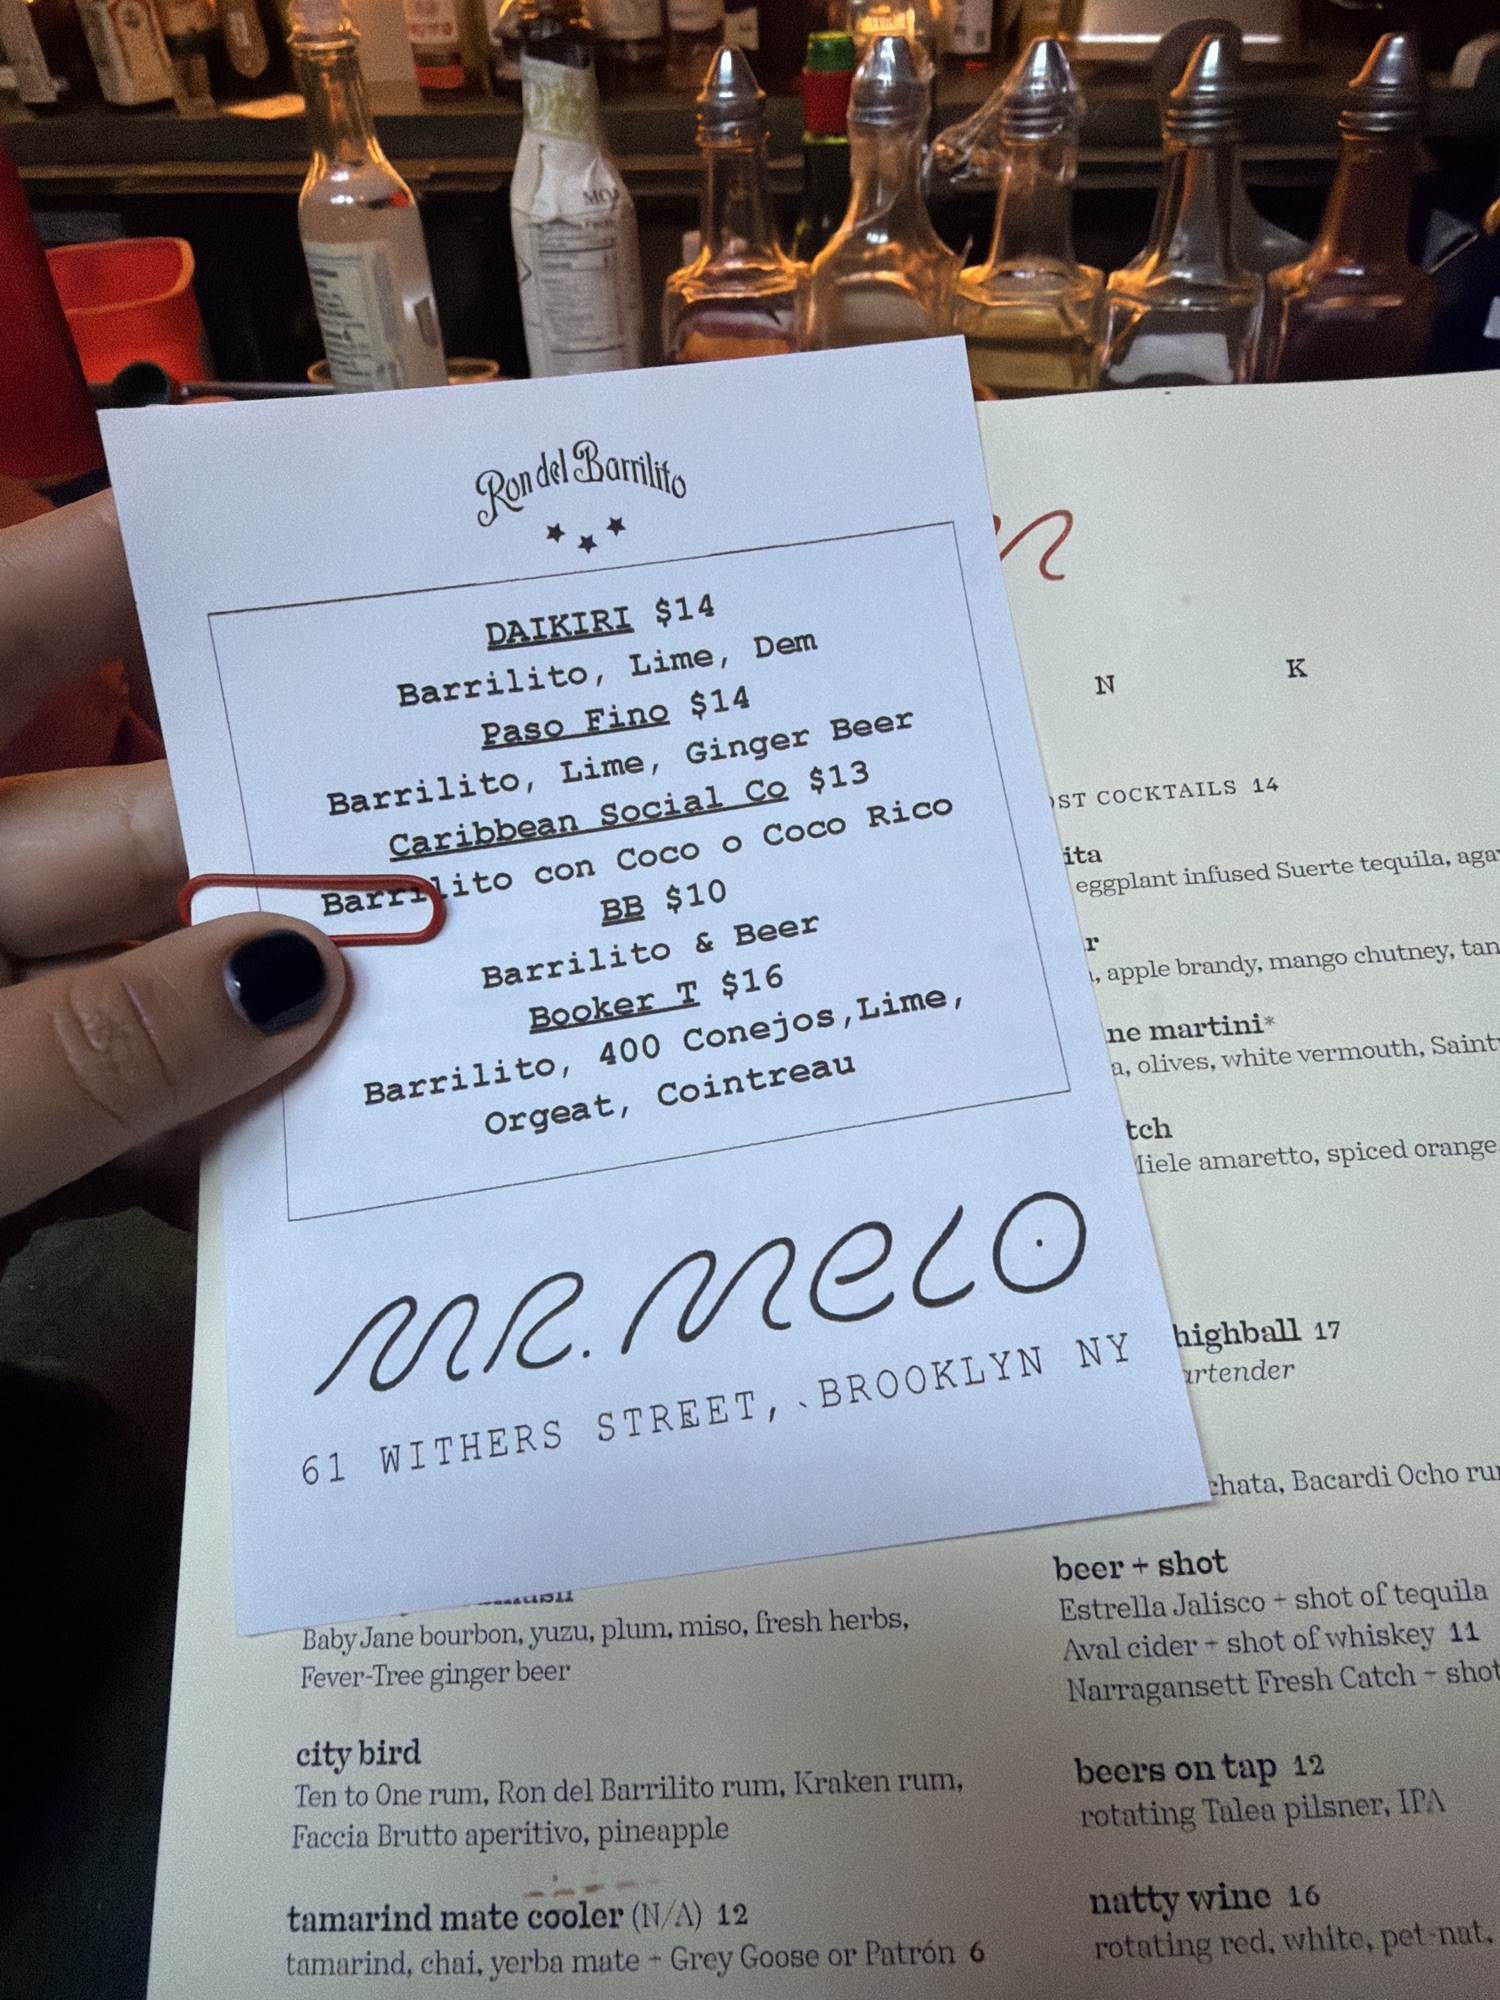 Ron del Barrilito
DAIKIRI $14
Barrilito, Lime, Dem
Paso Fino $14
Barrilito, Lime, Ginger Beer
Caribbean Social Co $13
Barrilito con Coco o Coco Rico
BB $10
Barrilito & Beer
Booker T $16
Barrilito, 400 Conejos,Lime,
Orgeat, Cointreau
MR. MELO
61 WITHERS STREET, BROOKLYN NY
N K
COCKTAILS 14
eggplant infused Suerte tequila,
apple brandy, mango chutney,
martini*
olives, white vermouth,
amaretto, spiced orange
highball 17
Bacardi Ocho
beer + shot
Estrella Jalisco + shot of tequila
Aval cider + shot of whiskey 11
Narragansett Fresh Catch + shot
beers on tap 12
rotating Talea pilsner, IPA
natty wine 16
rotating red, white, pet-nat,
Baby Jane bourbon, yuzu, plum, miso, fresh herbs,
Fever-Tree ginger beer
city bird
Ten to One rum, Ron del Barrilito rum, Kraken rum,
Faccia Brutto aperitivo, pineapple
tamarind mate cooler (N/A) 12
tamarind, chai, yerba mate + Grey Goose or Patrón 6